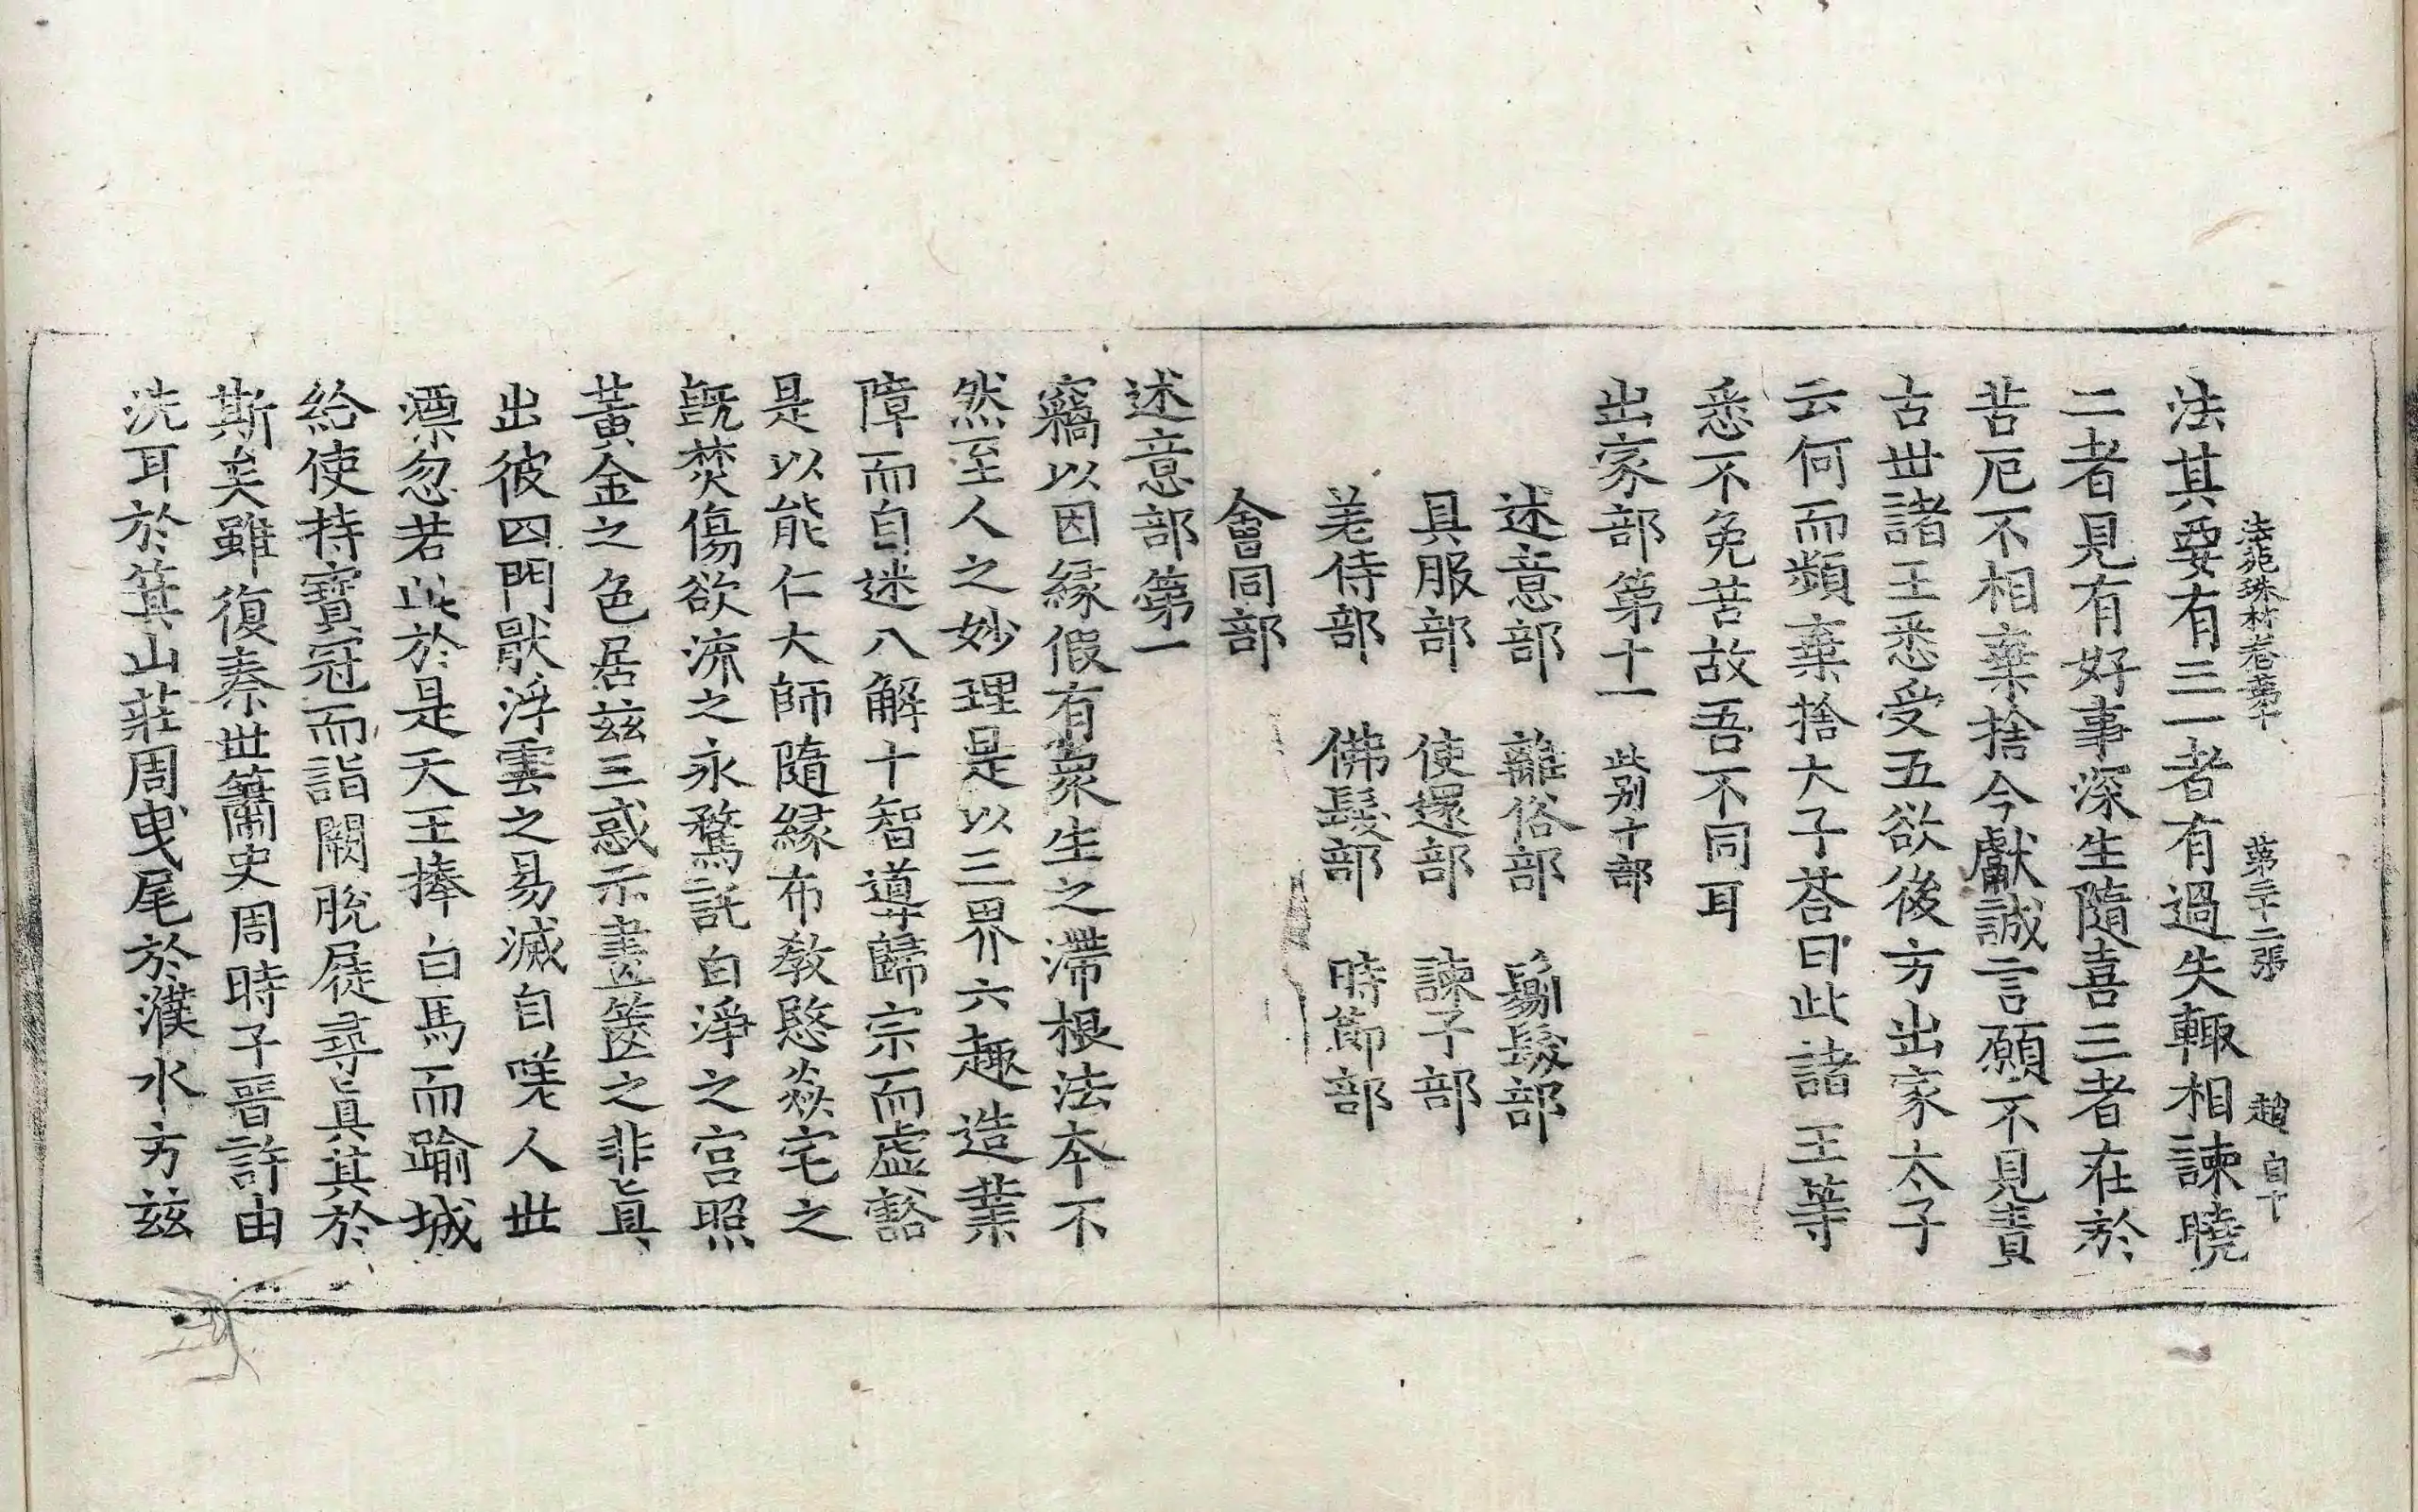 法苑珠林卷第十 第二十二張 趙 自下
法其要有三一者有過失輙相諫曉
二者見有好事深生隨喜三者在於
苦厄不相棄捨今獻誠言願不見責
古世諸王悉受五欲後方出家太子
云何而頻棄捨大子荅曰此諸王等
悉不免苦故吾不同耳
出家部第十一 此别十部
述意部 離俗部 剃髮部
具服部 使還部 諫子部
差侍部 佛髮部 時節部
會同部
述意部第一
竊以因緣假有衆生之滯根法本不
然至人之妙理是以三界六趣造業
障而自迷八解十智導歸宗而虛豁
是以能仁大師隨緣布教愍焱宅之
旣焚傷欲流之永騖託白淨之宫照
黃金之色居兹三惑示畫篋之非眞
出彼四門猒浮雲之易滅自嗟人世
漂忽若此於是天王捧白馬而踰城
給使持寶冠而詣闕脫屣尋眞其於
斯矣雖復秦世簫史周時子晉許由
洗耳於箕山莊周曳尾於濮水方兹